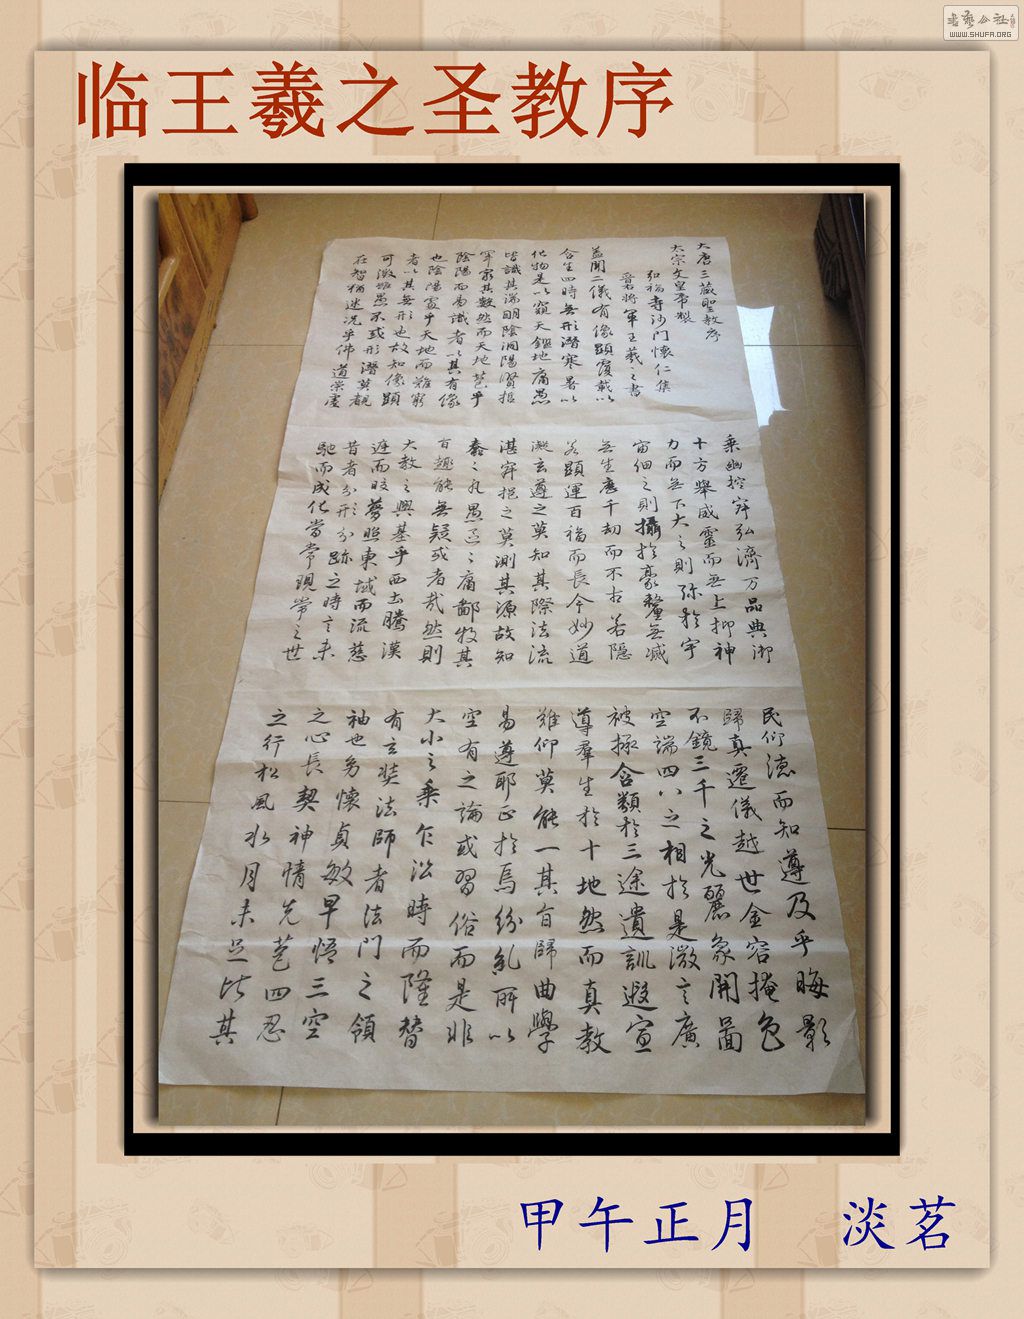 書藝公社
WWW.SHUFA.ORG
临王羲之圣教序
大唐三藏聖教序
太宗文皇帝製
弘福寺沙門懷仁集
晉右將軍王羲之書
蓋聞二儀有像顯覆載以
含生四時無形潛寒暑以
化物是以窺天鑑地庸愚
皆識其端明陰洞陽賢哲
罕窮其數然而天地苞乎
陰陽而易識者以其有像
也陰陽處乎天地而難窮
者以其無形也故知像顯
可徵雖愚不惑形潛莫覩
在智猶迷況乎佛道崇虛
乘幽控寂弘濟万品典御
十方舉威靈而無上抑神
力而無下大之則弥於宇
宙細之則攝於豪釐無滅
無生歷千劫而不古若隱
若顯運百福而長今妙道
凝玄遵之莫知其際法流
湛寂挹之莫測其源故知
蠢々凡愚區々庸鄙投其
旨趣能無疑或者哉然則
大教之興基乎西土騰漢
庭而皎夢照東域而流慈
昔者分形分跡之時言未
馳而成化當常現常之世
民仰德而知遵及乎晦影
歸真遷儀越世金容掩色
不鏡三千之光麗象開圖
空端四八之相於是微言廣
被拯含類於三途遺訓遐宣
導羣生於十地然而真教
難仰莫能一其旨歸曲學
易遵耶正於焉紛糺所以
空有之論或習俗而是非
大小之乘乍沿時而隆替
有玄奘法師者法門之領
袖也幼懷貞敏早悟三空
之心長契神情先苞四忍
之行松風水月未足比其
甲午正月 淡茗